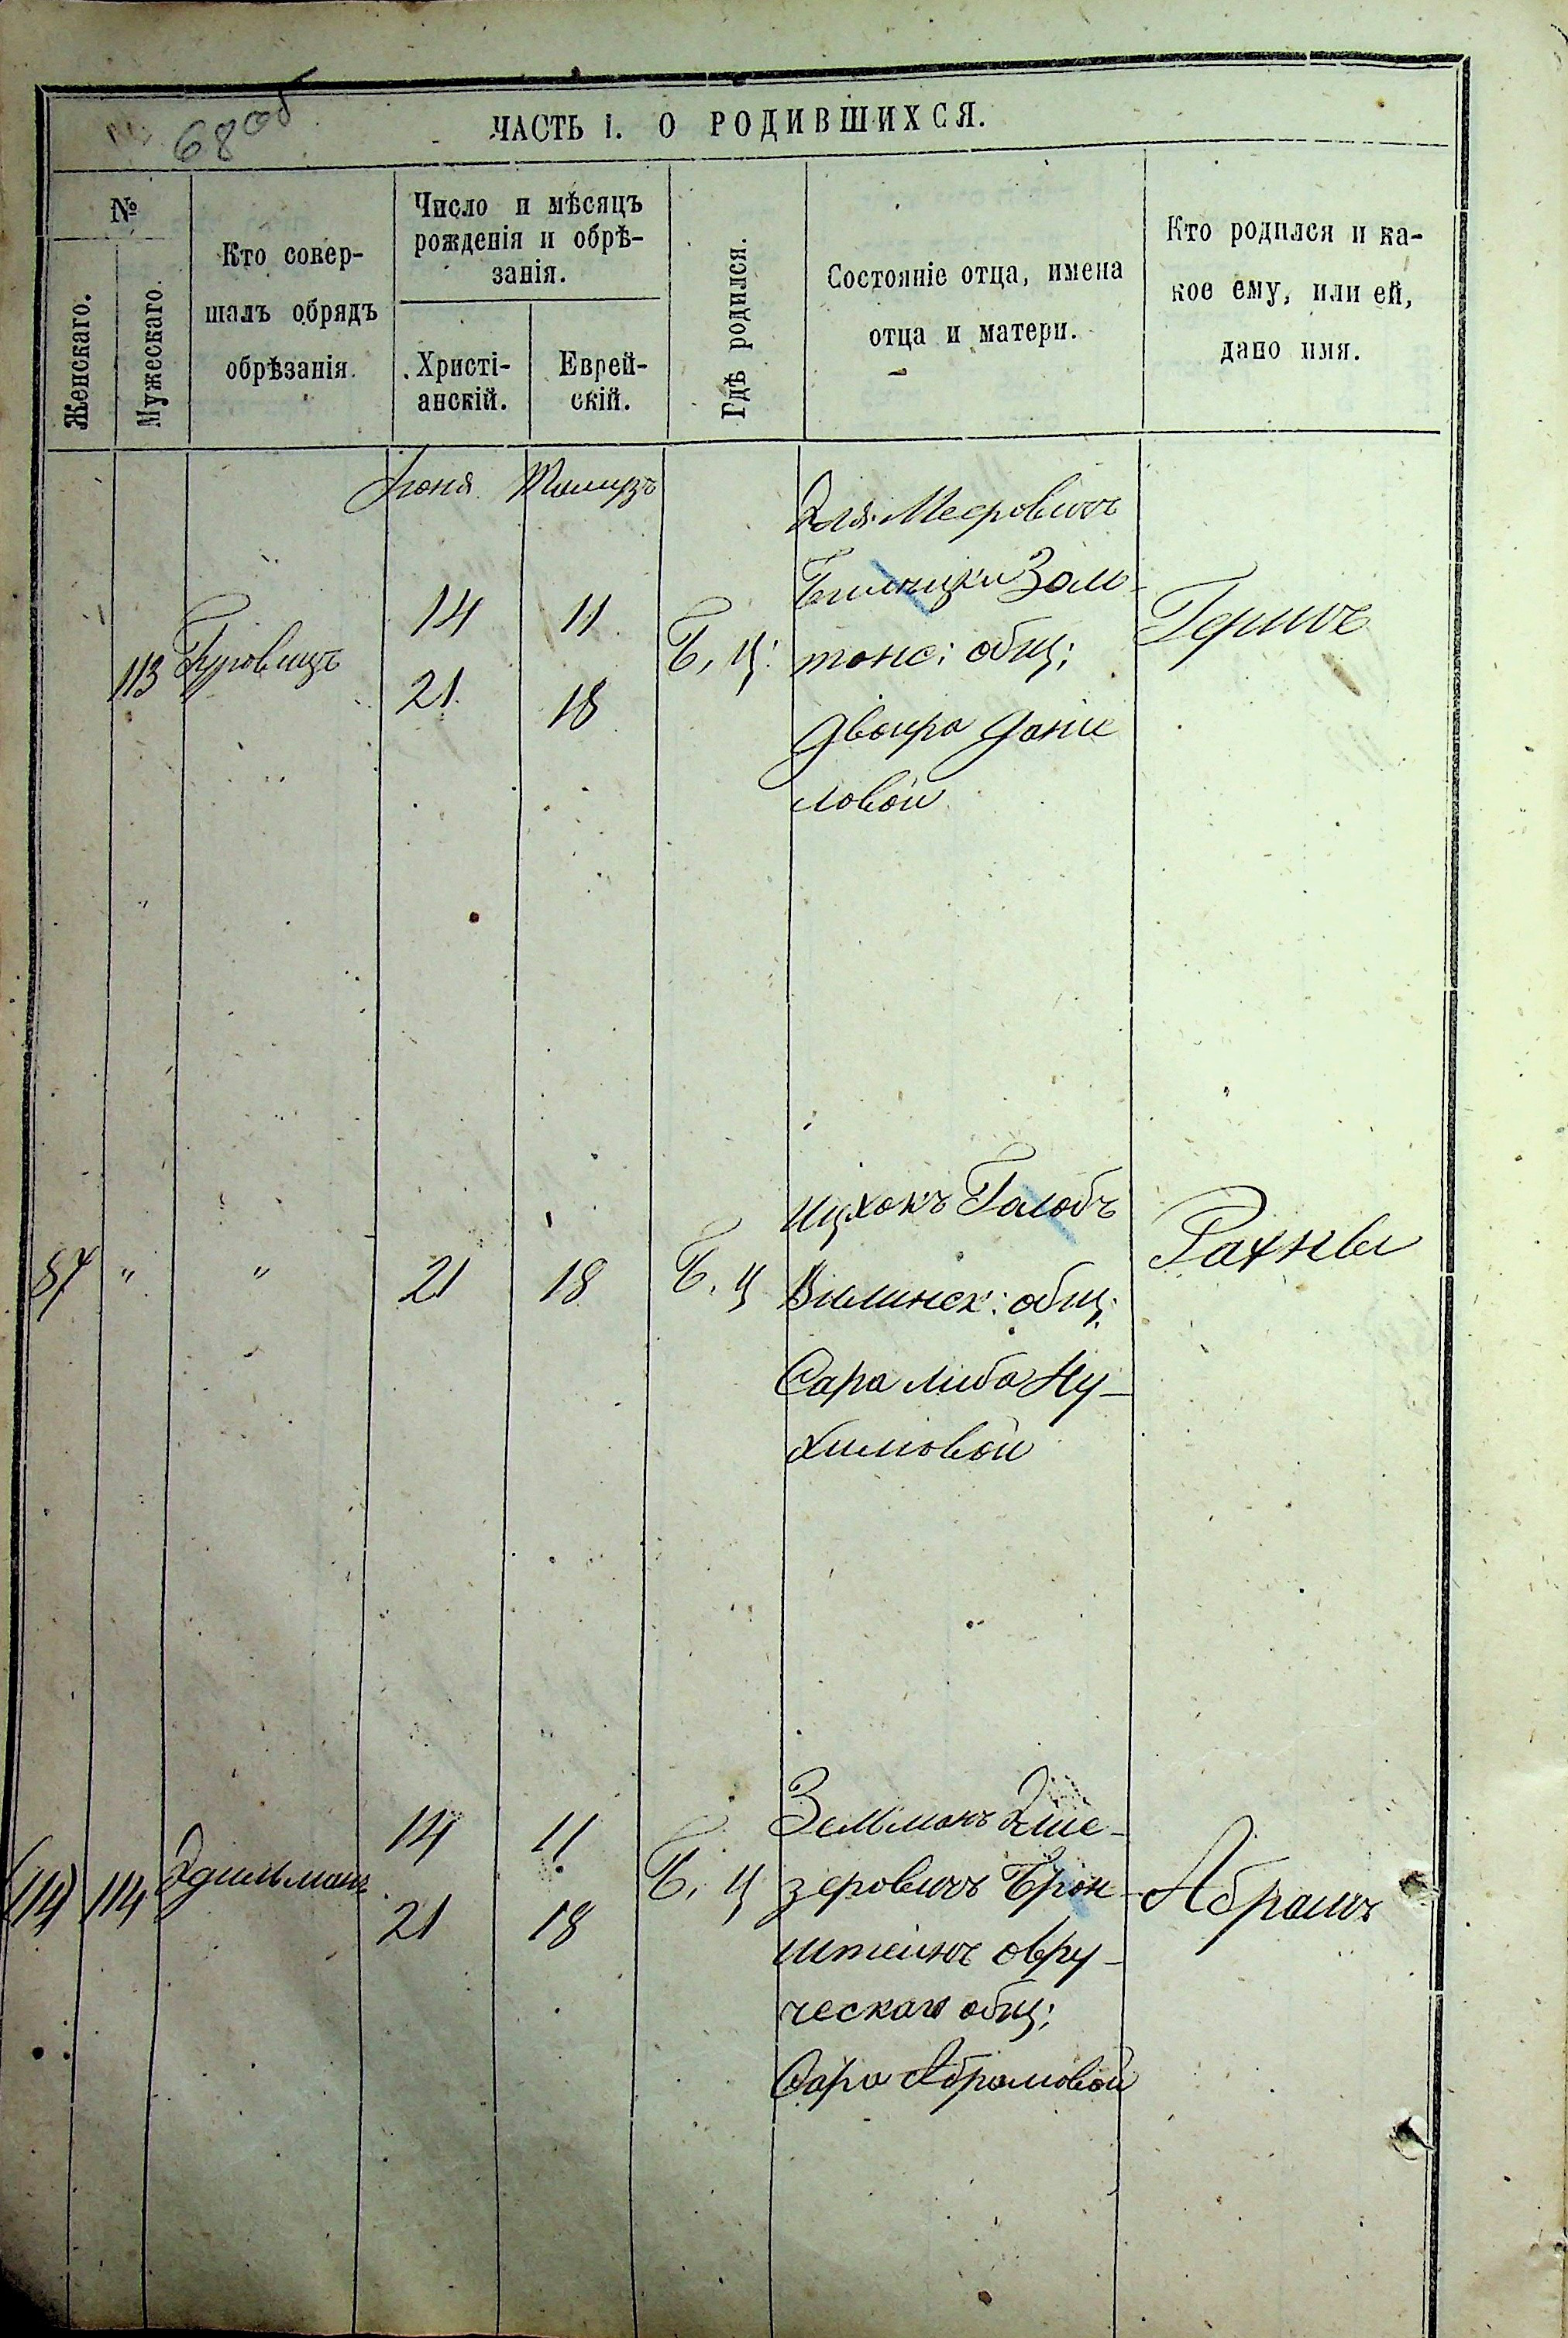 68об
ЧАСТЬ I. О РОДИВШИХСЯ.
№
Женскаго.
Мужескаго.
Кто совер-
шалъ обрядъ
обрѣзанія.
Число и мѣсяцъ
рожденія и обрѣ-
занія.
Христі-
анскій.
Еврей-
скій.
Гдѣ родился.
Состояніе отца, имена
отца и матери.
Кто родился и ка-
кое ему, или ей,
дано имя.
Іюня Тамузъ
113 Гуровицъ
14 11
21 18
Б, Ц:
Эля Мееровичъ
Золо-
тонс: общ;
Двойра Дани
ловой
Гершъ
57 " "
21 18
Б. ц
Ицхокъ Голобъ
Вилинск: общ;
Сара Либа Ну-
химовой
Рахиль
(114) 114 Эдильманъ
14 11
21 18
Б, ц
Зельманъ Элие-
зеровичъ Брон-
штейнъ овру-
ческаго общ;
Сара Абрамовой
Абрамъ